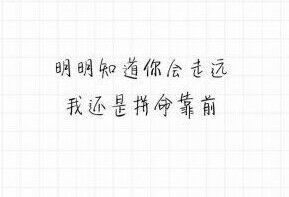 明明知道你会走远
我还是拼命靠前